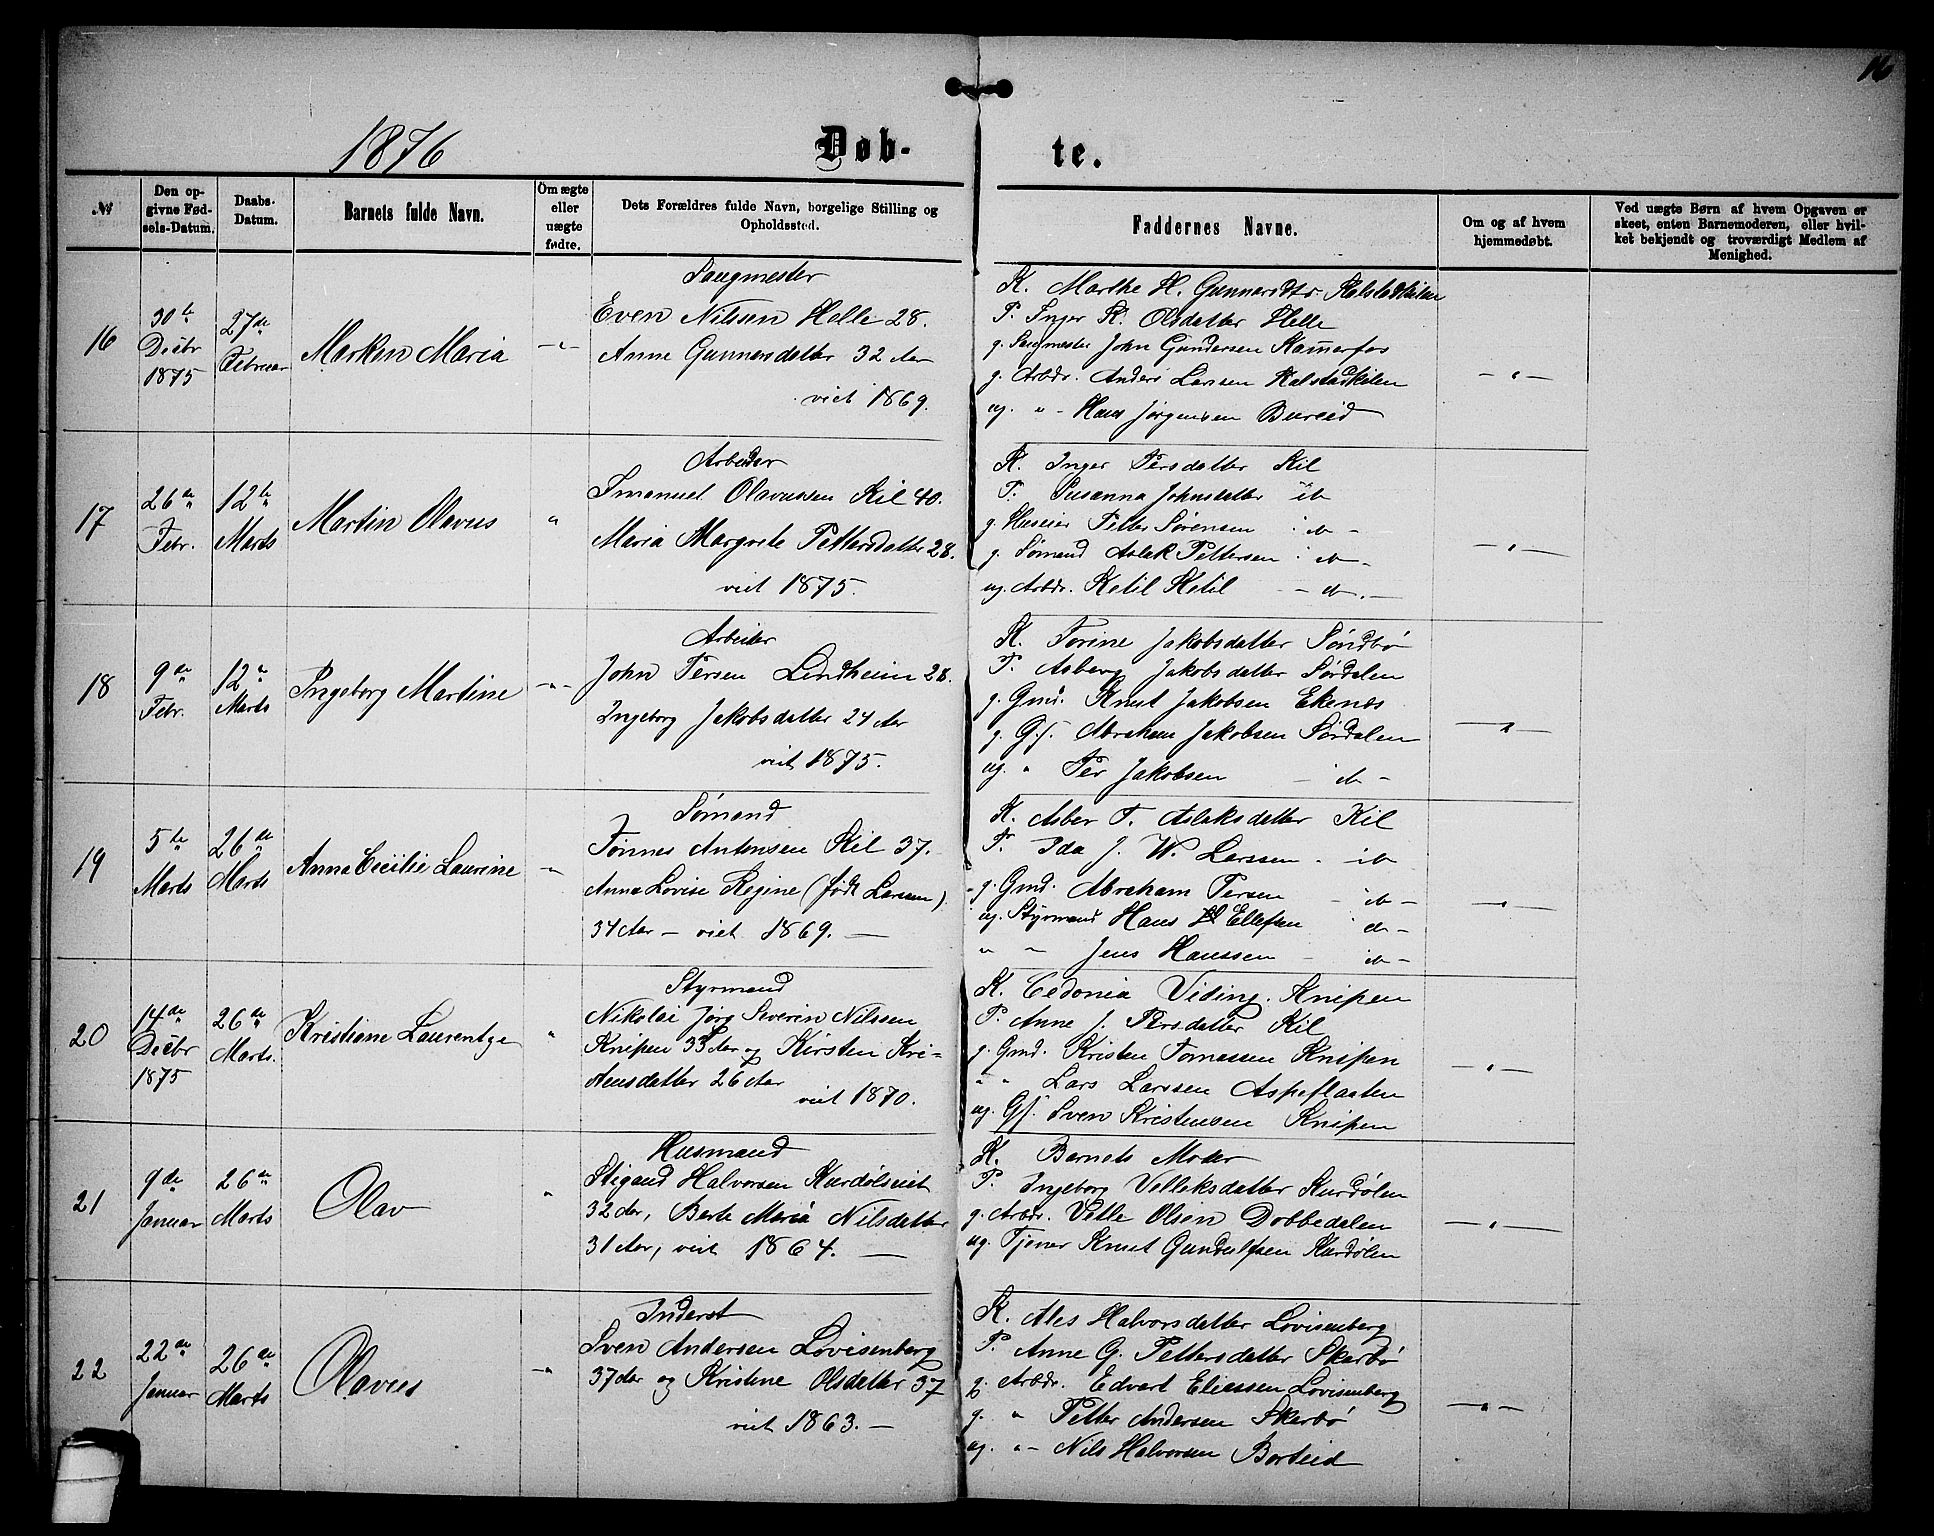 16
1876
Døb- te.
№
Den opgivne Fødsels-Datum.
Daabs-Datum.
Barnets fulde Navn.
Om ægte eller uægte fødte.
Dets Forældres fulde Navn, borgelige Stilling og Opholdssted.
Faddernes Navne.
Om og af hvem hjemmedøbt.
Ved uægte Børn af hvem Opgaven er skeet, enten Barnemoderen, eller hvilket bekjendt og troværdigt Medlem af Menighed.
16
30te Decbr 1875
27de Februar
Marken Maria
Saugmester
Even Nilssen Helle 28.
Anne Gunnarsdatter 32 Aar
viet 1869.
K. Marthe H. Gunnarsdtr. Kalstadkilen
P. Inger K. Olsdatter Helle
g. Saugmester John Gundersen Kamerfos
g. Arbdr. Anders Larssen Kalstadkilen
ug. " - Hans Jørgensen Bureid
17
26de Febr.
12te Marts
Martin Olavus
"
Arbeider
Emanuel Olavussen Kil 40.
Maria Margrete Pettersdatter 28.
viet 1875.
K. Inger Persdatter Kil
P. Susanna Johnsdatter ib
g. Huseier Petter Sørensen ib -
g. Sømand Aslak Pettersen ib -
ug. Arbdr. Ketil Ketil - d. -
18
9de Febr.
12te Marts
Ingeborg Martine
Arbeider
John Persen Lindheim 28.
Ingeborg Jakobsdatter 24 Aar
viet 1875.
K. Torine Jakobsdatter Søndbø
P. Asberg Jakobsdatter Sørdalen
g. Gmd. Knut Jakobsen Ekenes
g. Gf. Abraham Jakobsen Sørdalen
ug. " Per Jakobsen - ib -
19
5te Marts
26de Marts
Anna Cecilie Laurine
Sømand
Tønnes Antonsen Kil 37.
Anna Lovise Regine (født Larssen)
34 Aar - viet 1869. -
K. Asber T. Aslaksdatter Kil
P. Ida J. W. Larssen - ib
g. Gmd. Abraham Persen - ib -
ug. Styrmand Hans Ellefsen d -
" " Jens Hanssen - ib -
20
14de Decbr 1875
26de Marts.
Kristiane Laurentze
"
Styrmand
Nikolai Jørg Severin Nilssen
Knipen 33 Aar og Kirsten Kri-
stensdatter 26 Aar
viet 1870.
K. Cedonia Viding. Knipen
P. Anne J. Persdatter Kil
g. Gmd. Kristen Tomassen Knipen
" " Lars Larssen Aspeflaaten
ug. Gf. Sven Kristensen Knipen
21
9de Januar
26de Marts
Olav
"
Husmand
Stigand Halvorsen Kurdølseiet
32 Aar, Berte Maria Nilsdatter
31 Aar, viet 1864. -
K. Barnets Moder
P. Ingeborg Velleksdatter Kurdølen
g. Arbdr. Vetle Olsen Dobbedalen
ug. Tjener Knut Gundulfsen Kurdølen
22
22de Januar
26de Marts
Olavus
Inderst
Sven Andersen Lovisenberg
37 Aar og Kristine Olsdatter 37
viet 1863. -
K. Ales Halvorsdatter Lovisenberg
P. Anne G. Pettersdatter Skarbø
g. Arbdr. Edvart Eliassen Lovisenberg
g. " Petter Andersen Skarbø
ug. " - Nils Halvorsen Borteid